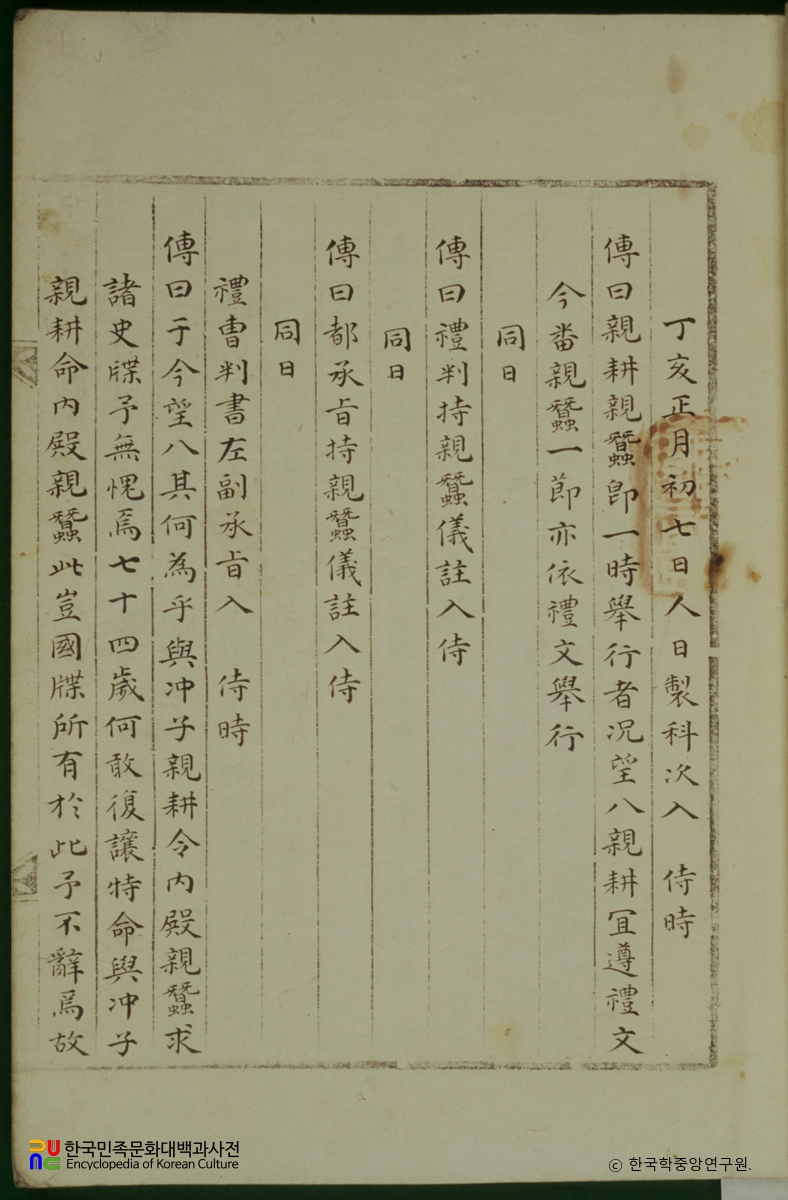 丁亥正月初七日人日製科次入　侍時
傳曰親耕親蠶卽一時擧行者况望八親耕冝遵禮文
今番親蠶一節亦依禮文擧行
同日
傳曰禮判持親蠶儀註入侍
同日
傳曰都承旨持親蠶儀註入侍
同日
禮曺判書左副承旨入　侍時
傳曰于今望八其何為乎與冲子親耕令內殿親蠶求
諸史牒予無愧焉七十四歲何敢復讓特命與冲子
親耕命內殿親蠶此豈國牒所有於此予不辭焉故
한국민족문화대백과사전
Encyclopedia of Korean Culture
© 한국학중앙연구원.